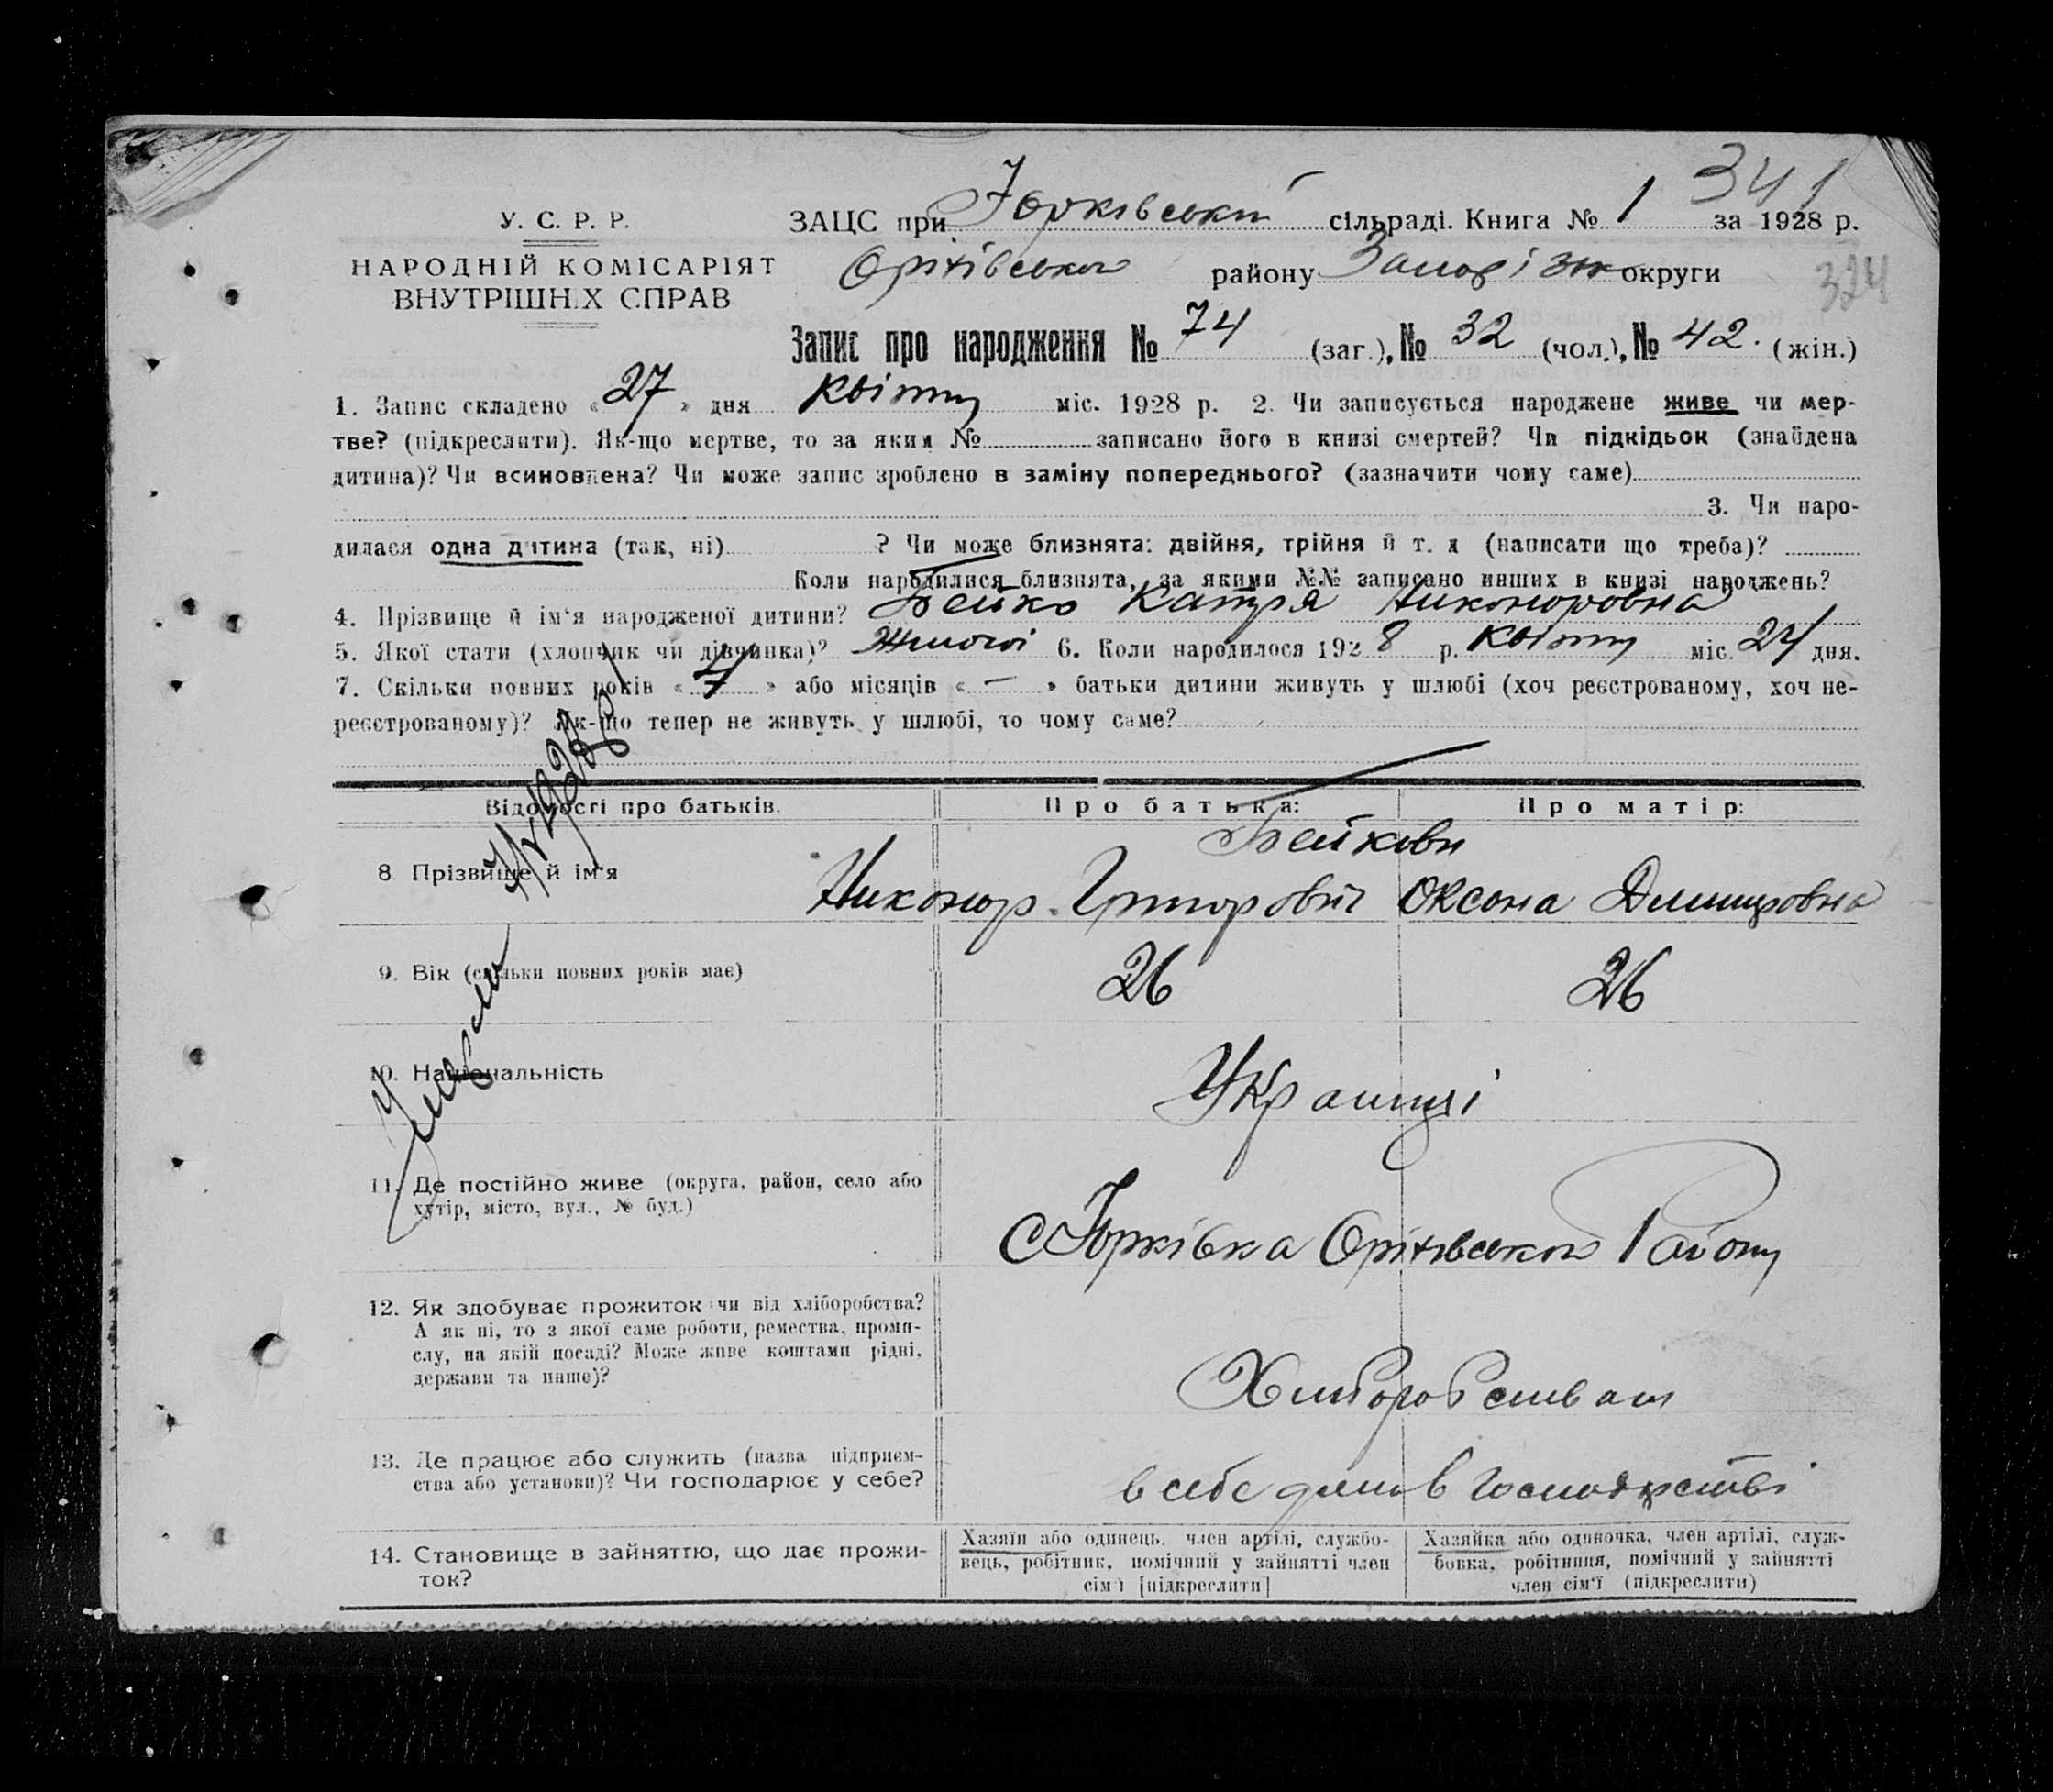 341
У. С. Р. Р.
ЗАЦС при Юрківській сільраді. Книга № 1 за 1928 р.
НАРОДНІЙ КОМІСАРІЯТ
ВНУТРІШНІХ СПРАВ
Оріхівського району Запоріжж округи
324
Запис про народження № 74 (заг.), № 32 (чол.), № 42. (жін.)
1. Запис складено « 27 » дня квітня міс. 1928 р. 2. Чи записується народжене живе чи мер-
тве? (підкреслити). Як-що мертве, то за яким № записано його в книзі смертей? Чи підкідьок (знайдена
дитина)? Чи всиновлена? Чи може запис зроблено в заміну попереднього? (зазначити чому саме)
3. Чи наро-
дилася одна дитина (так, ні) ? Чи може близнята: двійня, трійня й т. д (написати що треба)?
Коли народилися близнята, за якими №№ записано инших в книзі народжень?
4. Прізвище й ім‘я народженої дитини? Бейко Катря Никоноровна
5. Якої стати (хлопчик чи дівчинка)? Жіночої 6. Коли народилося 1928 р. квітня міс. 24 дня.
7. Скільки повних років « 7 » або місяців « — » батьки дитини живуть у шлюбі (хоч реєстрованому, хоч не-
реєстрованому)? Як-що тепер не живуть у шлюбі, то чому саме?
Відомості про батьків. Про батька: Про матір:
Бейкови
8 Прізвище й ім‘я Никонор Григорович Оксона Дмитровна
9. Вік (скільки повних років має) 26 26
10. Національність Українці
11. Де постійно живе (округа, район, село або
хутір, місто, вул., № буд.)
С Юрківка Оріхівського Району
12. Як здобуває прожиток чи від хліборобства?
А як ні, то з якої саме роботи, ремества, проми-
слу, на якій посаді? Може живе коштами рідні,
держави та инше)?
13. Де працює або служить (назва підприєм-
ства або установи)? Чи господарює у себе?
в себе дома в Господарстві
14. Становище в зайняттю, що дає прожи-
ток?
Хазяїн або одинець, член артілі, службо-
вець, робітник, помічний у зайнятті член
сім‘ї [підкреслити]
Хазяйка або одиночка, член артілі, служ-
бовка, робітниця, помічний у зайнятті
член сім‘ї (підкреслити)